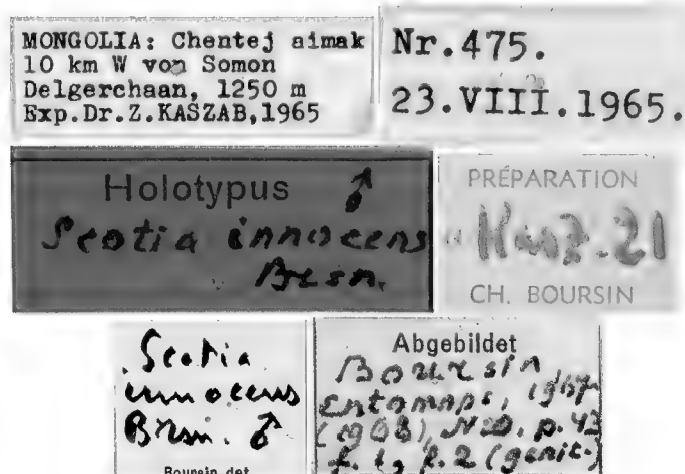 MONGOLIA: Chentej aimak
10 km W von Somon
Delgerchaan, 1250 m
Exp.Dr.Z.KASZAB,1965
Nr.475.
23.VIII.1965.
Holotypus ♂
Scotia innocens
Brsn.
PRÉPARATION
Kasz. 21
CH. BOURSIN
Scotia
innocens
Brsn. ♂
Boursin det
Abgebildet
Boursin
Entomops, 1967
(1968), N20, p.43
f. 1, f.2 (genit.)